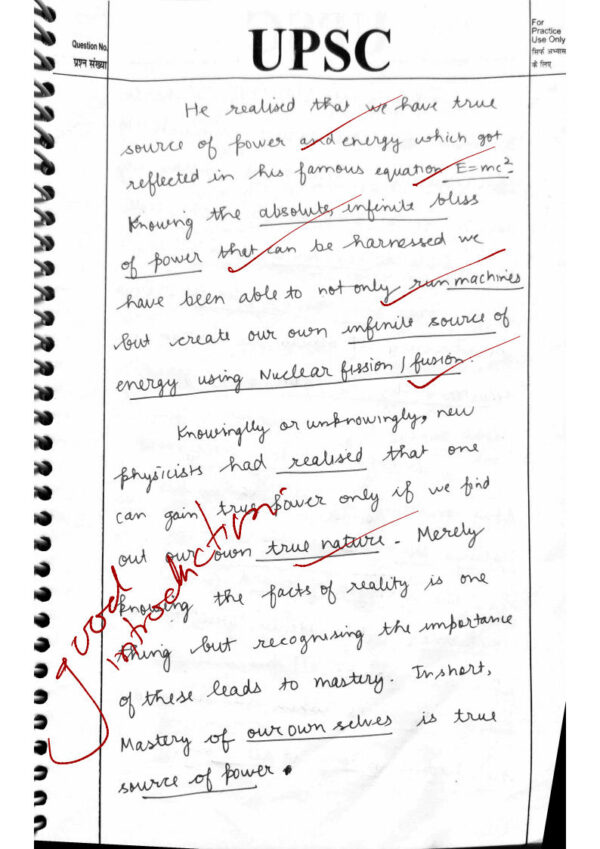 Question No.
प्रश्न संख्या
UPSC
For
Practice
Use Only
सिर्फ अभ्यास
के लिए
He realised that we have true
source of power and energy which got
reflected in his famous equation E=mc².
Knowing the absolute, infinite bliss
of power that can be harnessed we
have been able to not only run machines
but create our own infinite source of
energy using Nuclear fission / fusion.
Knowinglly or unknowingly, new
physicists had realised that one
can gain true power only if we find
out our own true nature. Merely
knowing the facts of reality is one
thing but recognising the importance
of these leads to mastery. In short,
Mastery of our own selves is true
source of power.
good
introduction.